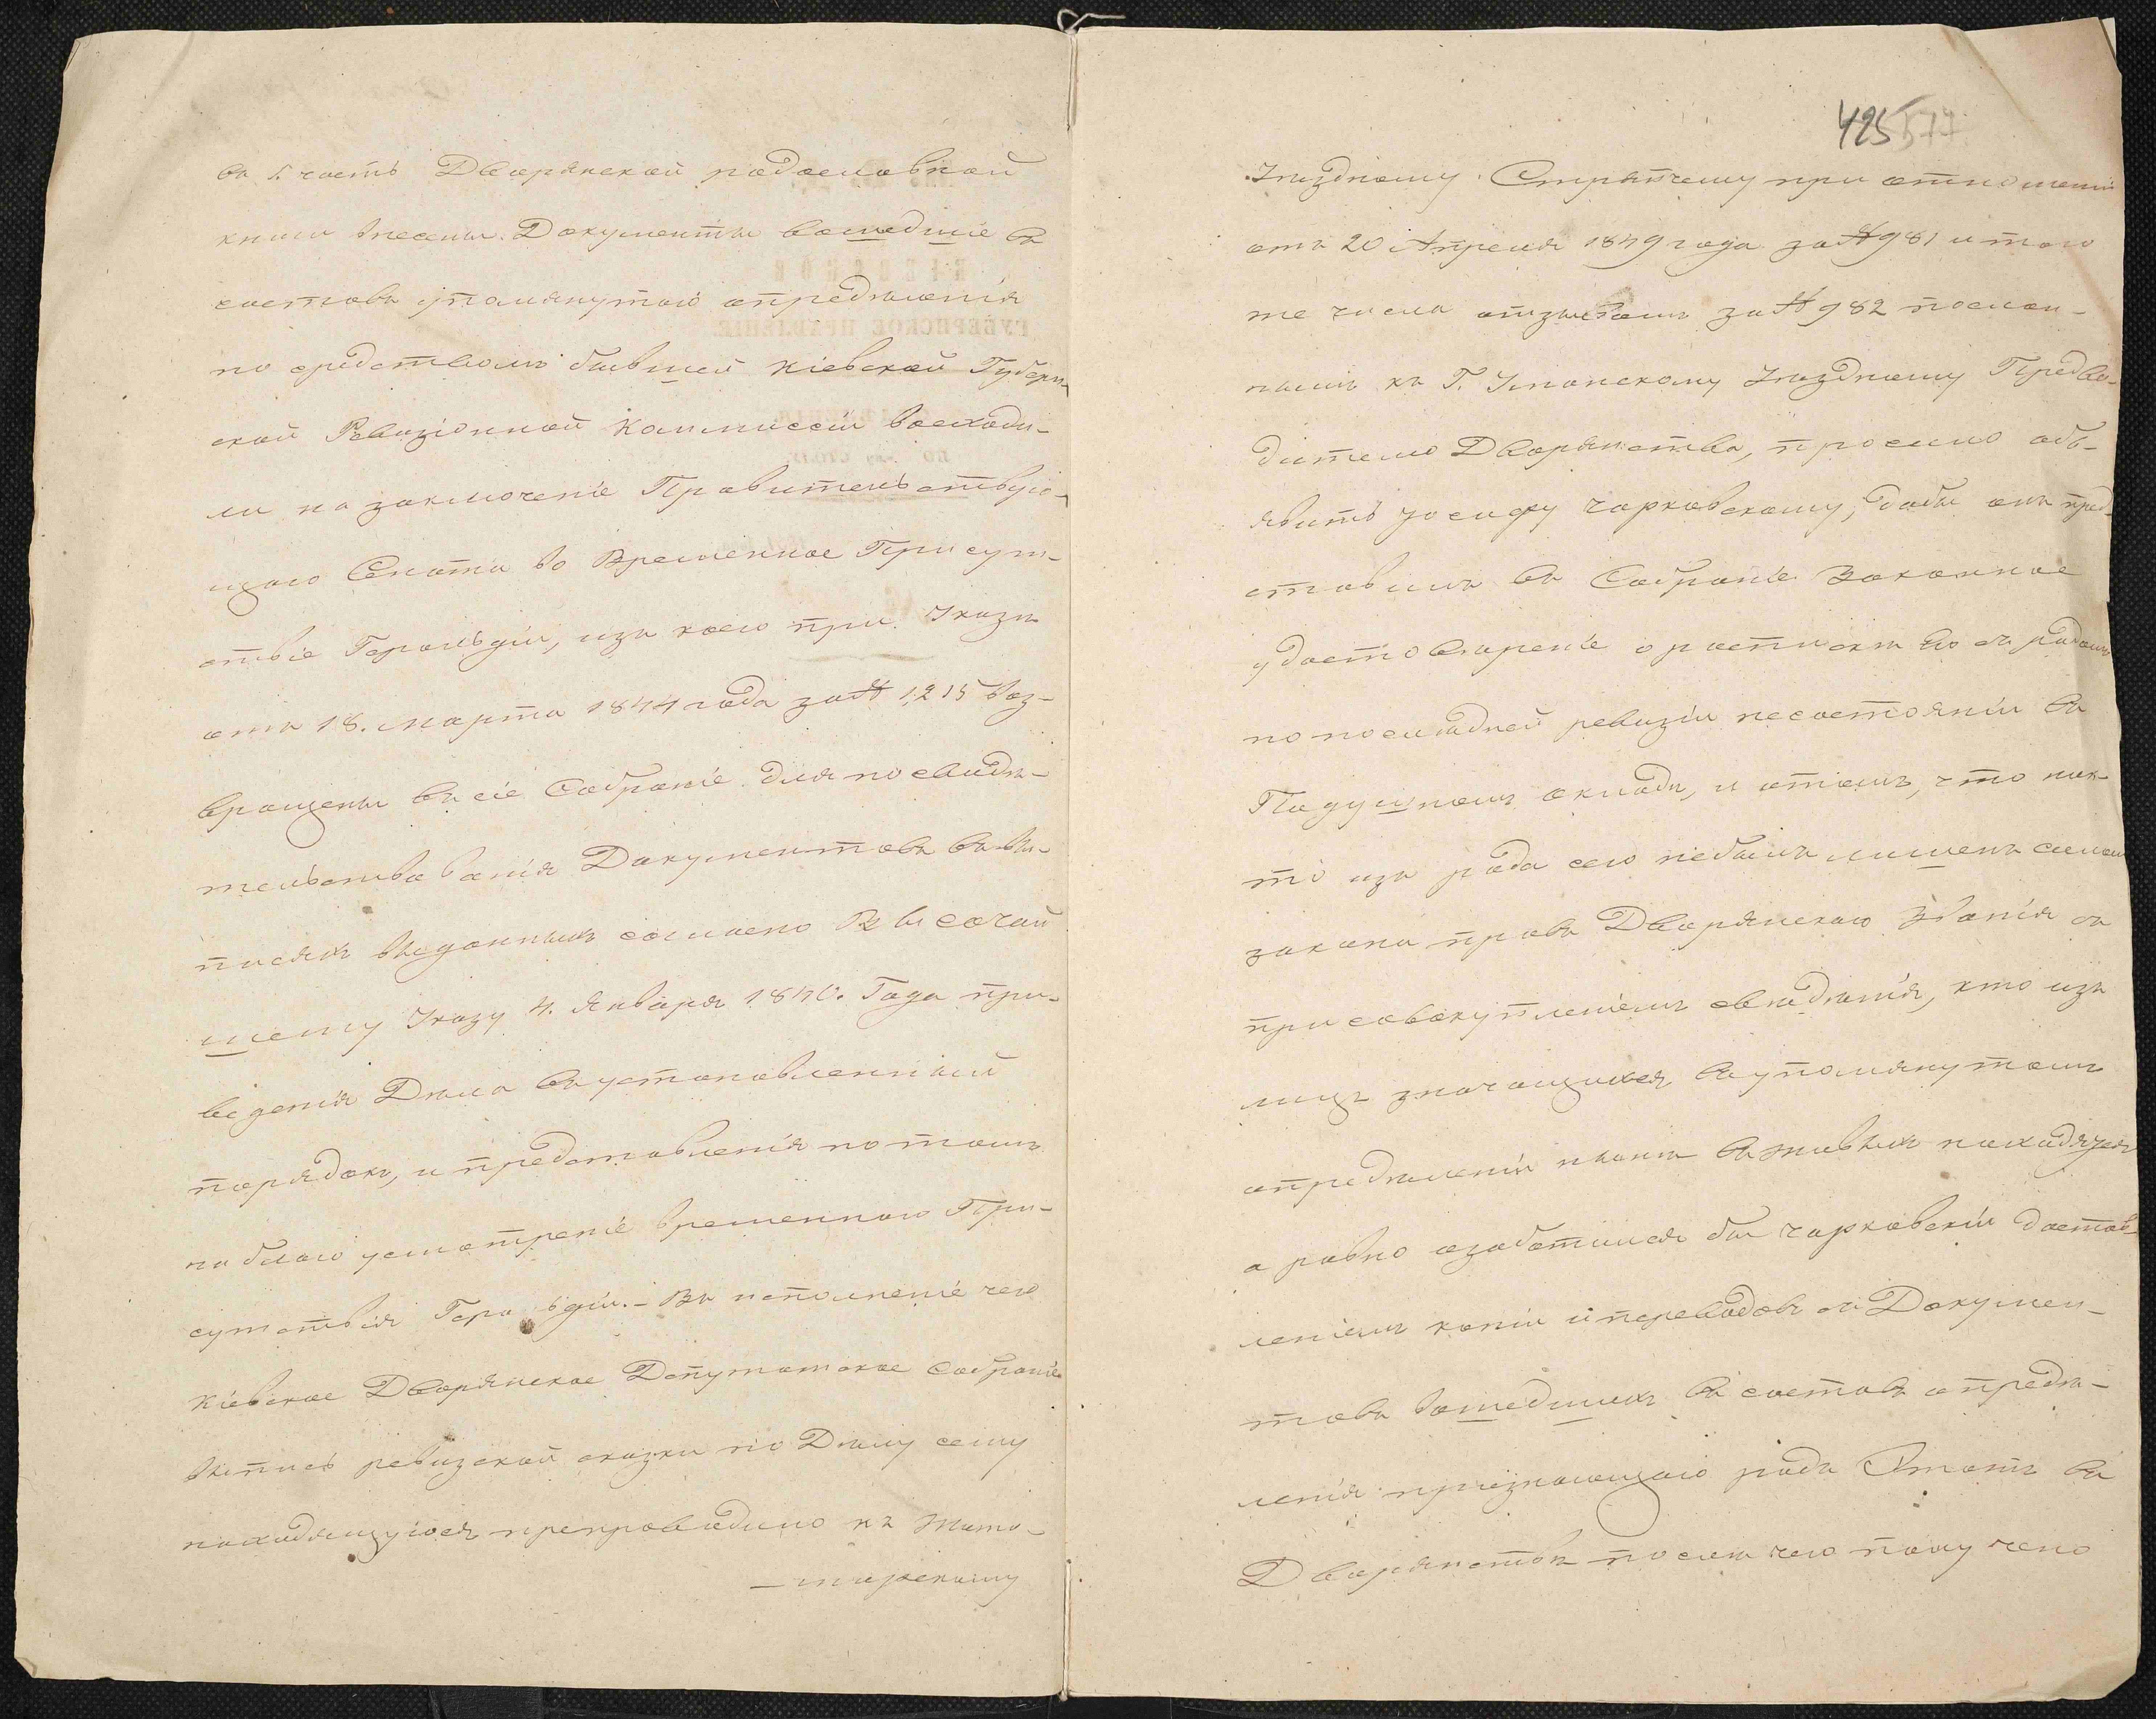 въ 1. часть Дворянской родословной
книги внесены. Документы вошедшіе въ
составъ упомянутаго опредѣленія
по средствомъ бывшей Кіевской Губерн-
ской Ревизіонной Коммиссіи восходи-
ли на заключеніе Правительствую-
щаго Сената во Временное Присут-
ствіе Герольдіи, изъ коего при Указѣ
отъ 18. Марта 1844 года за № 1215 воз-
вращены въ сіе Собраніе для по свидѣ-
тельствованія Документовъ въ вы-
писяхъ выданныхъ согласно Высочай
шему Указу 4. Января 1840. Года при-
веденія Дѣла въ установленный
порядокъ, и представленія по томъ
на благо усмотреніе временнаго При-
сутствія Герольдіи. - Въ исполненіе чего
Кіевское Дворянское Депутатское Собраніе
выпись ревизской сказки по Дѣлу сему
находящуюся препроводило къ Жито-
- мирскому
425 577
Уѣздному Стряпчему при отношеніи
отъ 20 Апреля 1849 года за № 981 и того
же числа отзывомъ за № 982 послан-
нымъ къ Г. Уманскому Уѣздному Предво-
дителю Дворянства, просило объ-
явить Іосифу Чарковскому, дабы онъ пред-
ставилъ въ Собраніе Законное
удостовѣреніе о распискѣ его съ родомъ
по последней ревизіи несостояніи въ
Подушномъ окладѣ, и отомъ, что ник-
то изъ рода сего небылъ лишенъ силою
закона правъ Дворянскаго Званія съ
присовокупленіемъ свѣдѣнія, кто изъ
лицъ значащихся въ упомянутомъ
опредѣленіи нынѣ въ живыхъ находятся
а равно озаботился бы Чарковскій достав-
леніемъ копіи и переводовъ съ Докумен-
товъ вошедшихъ въ составъ опредѣ-
ленія признающаго родъ Этотъ въ
Дворянствѣ послѣ чего получено